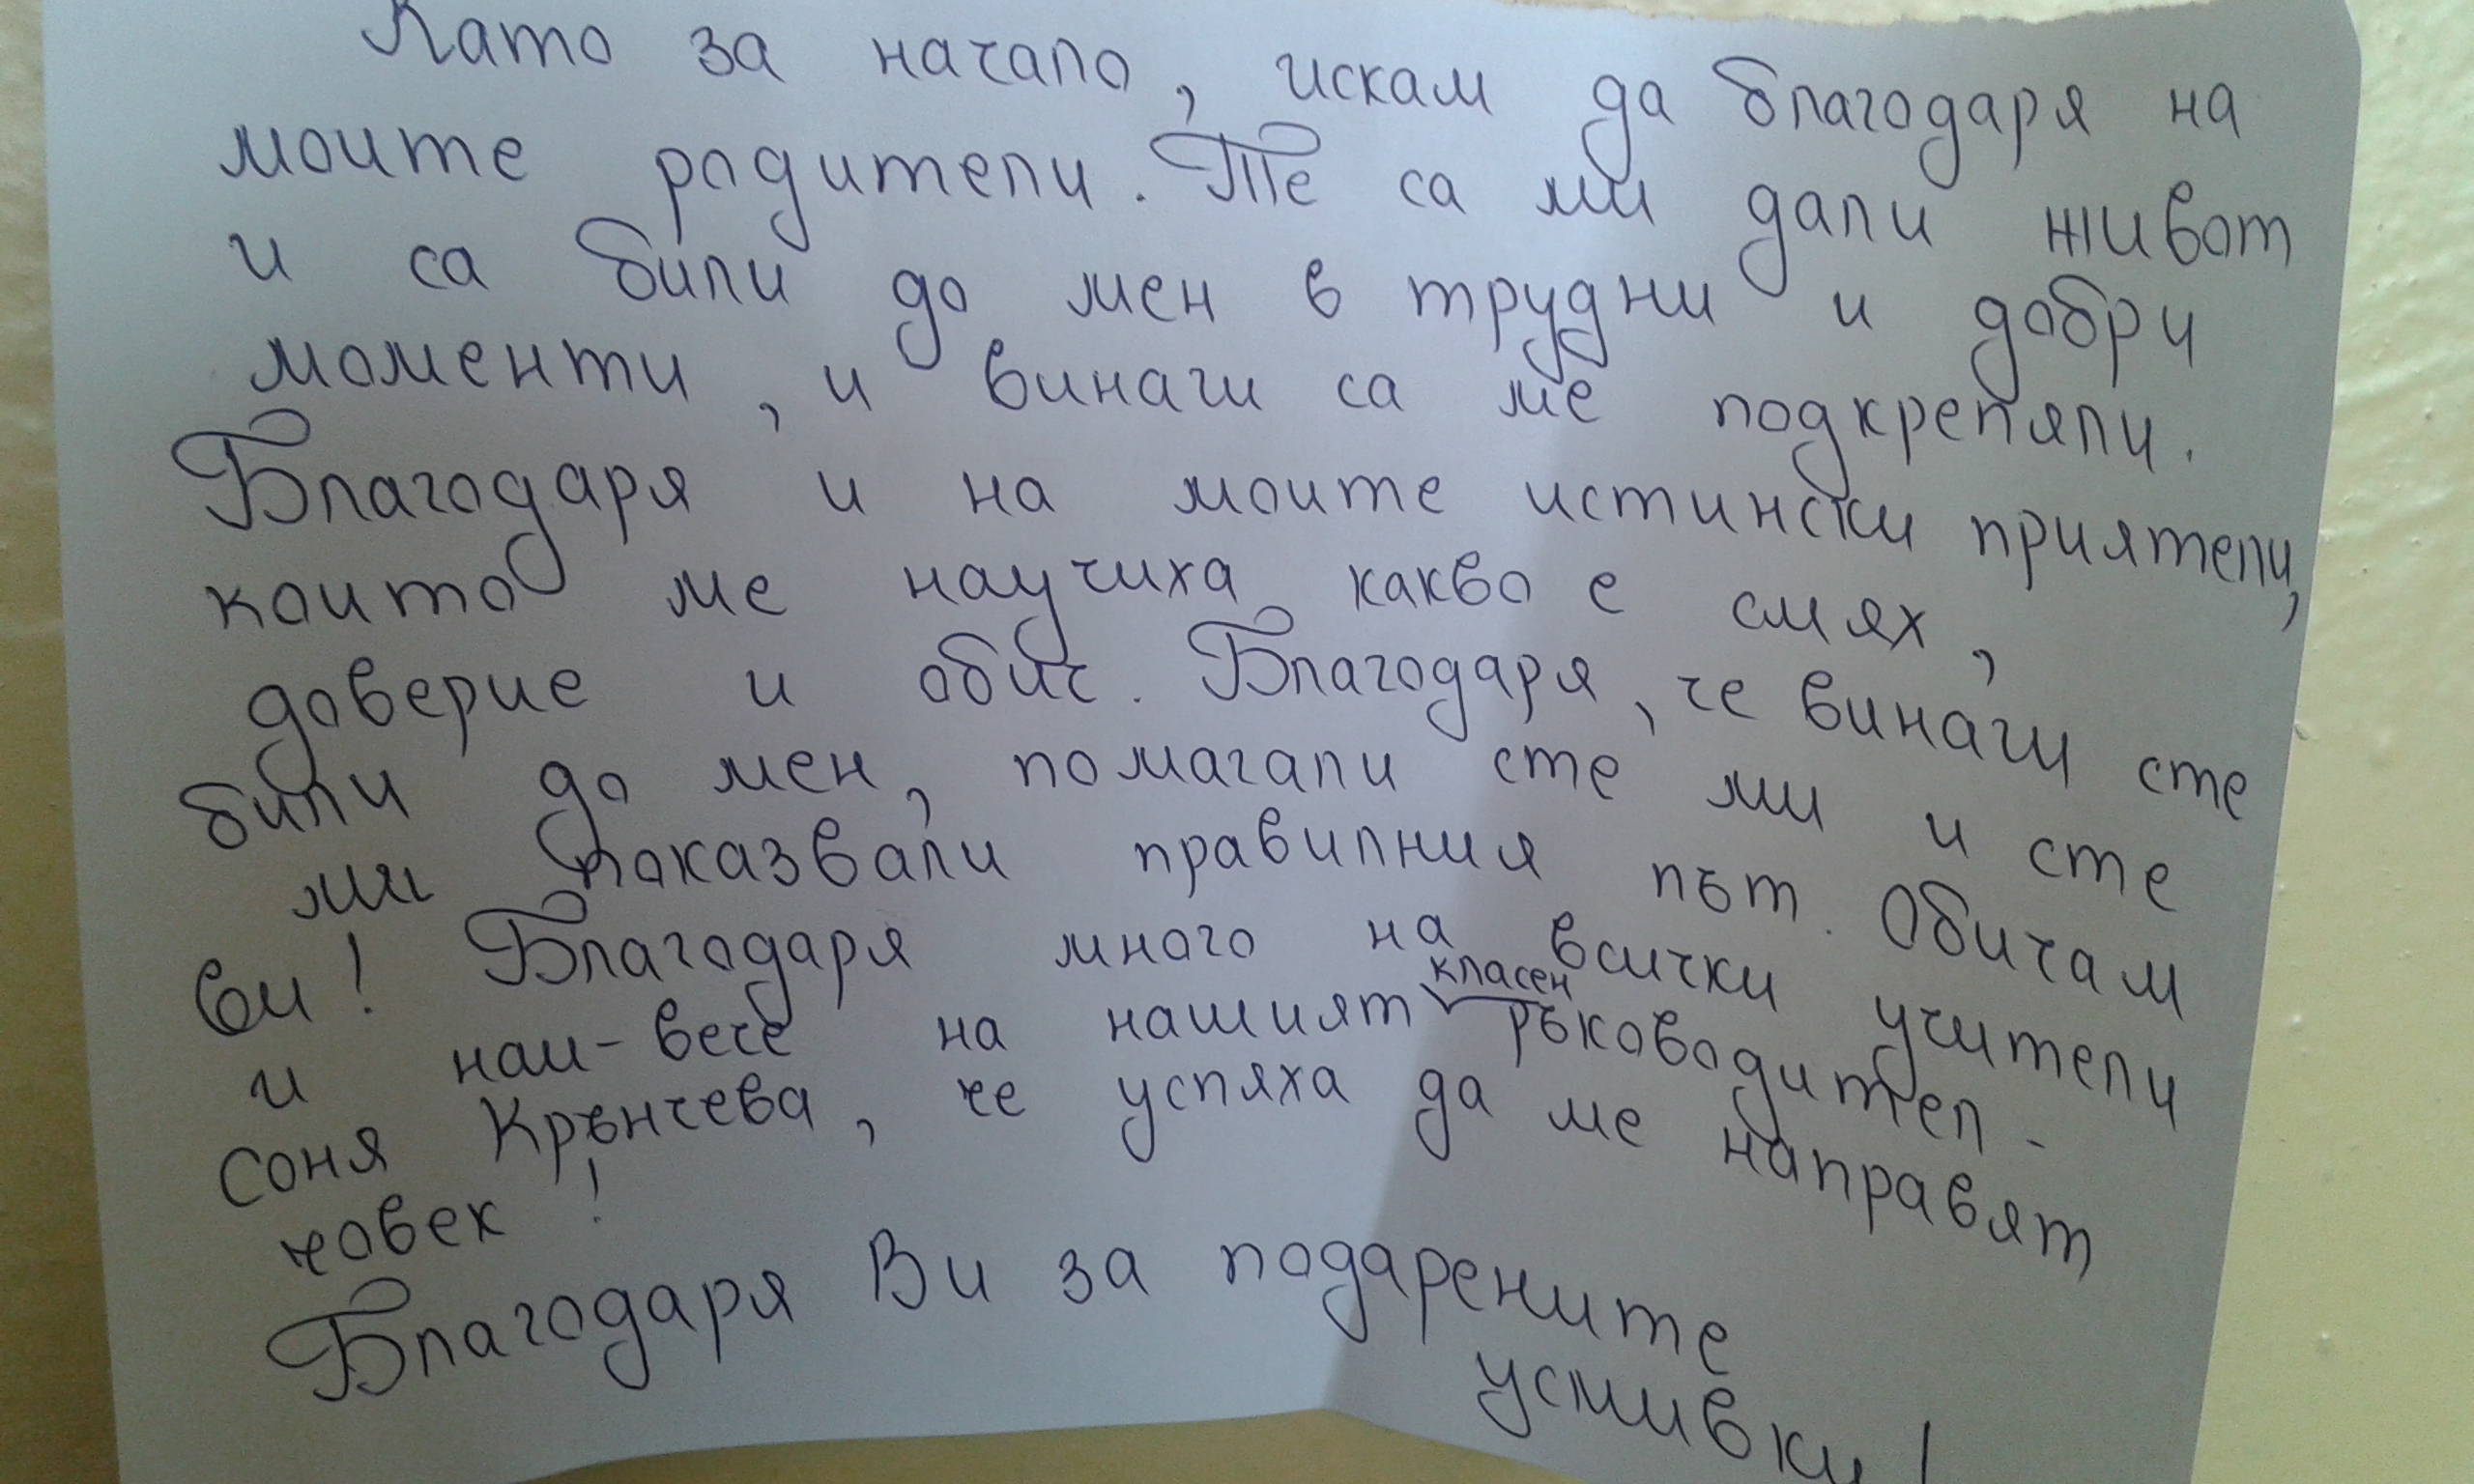 Като за начало, искам да благодаря на
моите родители. Те са ми дали живот
и са били до мен в трудни и добри
моменти, и винаги са ме подкрепяли.
Благодаря и на моите истински приятели,
коита ме научиха какво е смях,
доверие и обич. Благодаря, че винаги сте
били до мен, помагали сте ми и сте
ми показвали правилния път. Обичам
ви! Благодаря много на всички учители
и наи-вече на нашият класен ръководител -
Соня Крънчева, че успяха да ме направят
човек!
Благодаря Ви за подарените
усмивки!